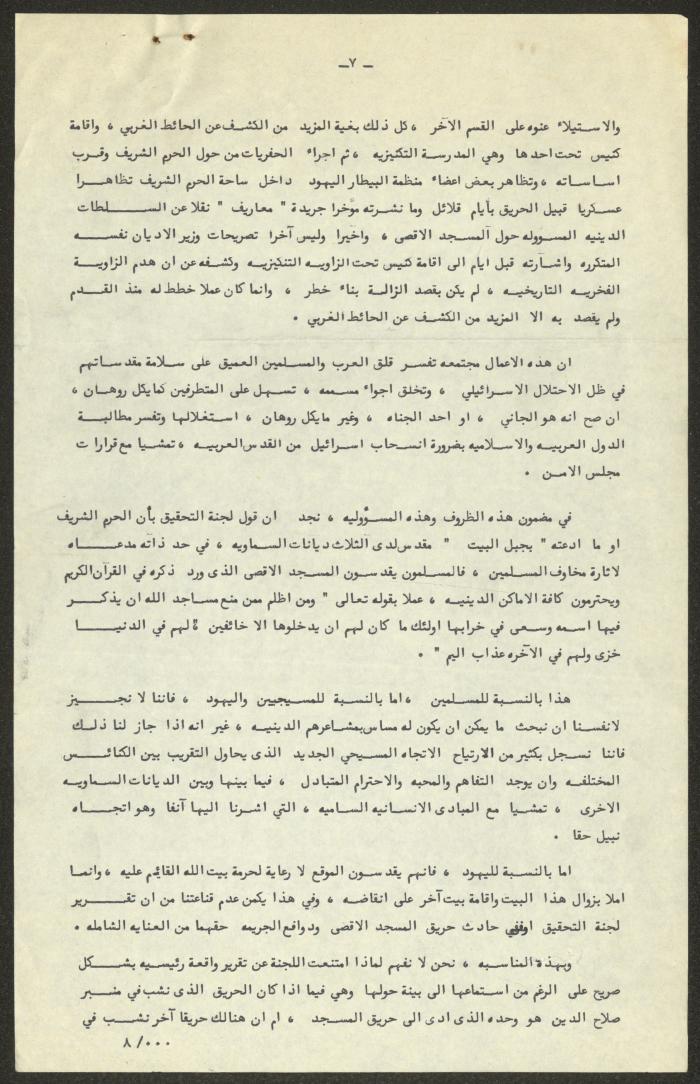 ـ ٧ـ
والاستيلاء عنوه على القسم الآخر ، كل ذلك بغية المزيد من الكشف عن الحائط الغربي ، واقامة
كنيس تحت احدها وهي المدرسة التكنيزيه ، ثم اجراء الحفريات من حول الحرم الشريف وقرب
اساساته ، وتظاهر بعض اعضاء منظمة البيطار اليهود داخل ساحة الحرم الشريف تظاهرا
عسكريا قبيل الحريق بأيام قلائل وما نشرته مؤخرا جريدة " معاريف " نقلا عن السلطات
الدينيه المسووله حول المسجد الاقصى ، واخيرا وليس آخرا تصريحات وزير الاديان نفسه
المتكرره واشارته قبل ايام الى اقامة كنيس تحت الزاويه التنكيزيه وكشفه عن ان هدم الزاوية
الفخريه التاريخيه ، لم يكن بقصد ازالة بناء خطر ، وانما كان عملا خطط له منذ القدم
ولم يقصد به الا المزيد من الكشف عن الحائط الغربي .
ان هذه الاعمال مجتمعه تفسر قلق العرب والمسلمين العميق على سلامة مقدساتهم
في ظل الاحتلال الاسرائيلي ، وتخلق اجواء مسممه ، تسهل على المتطرفين كمايكل روهان ،
ان صح انه هو الجاني ، او احد الجناه ، وغير مايكل روهان ، استغلالها وتفسر مطالبة
الدول العربيه والاسلاميه بضرورة انسحاب اسرائيل من القدس العربيه ، تمشيا مع قرارات
مجلس الامن .
في مضمون هذه الظروف وهذه المسؤوليه ، نجد ان قول لجنة التحقيق بأن الحرم الشريف
او ما ادعته " بجبل البيت " مقدس لدى الثلاث ديانات السماويه ، في حد ذاته مدعاه
لاثارة مخاوف المسلمين ، فالمسلمون يقدسون المسجد الاقصى الذى ورد ذكره في القرآن الكريم
ويحترمون كافة الاماكن الدينيه ، عملا بقوله تعالى " ومن اظلم ممن منع مساجد الله ان يذكر
فيها اسمه وسعى في خرابها اولئك ما كان لهم ان يدخلوها الا خائفين لهم في الدنيا
خزى ولهم في الآخره عذاب اليم " .
هذا بالنسبة للمسلمين ، اما بالنسبة للمسيحيين واليهود ، فاننا لا نجيز
لانفسنا ان نبحث ما يمكن ان يكون له مساس بمشاعرهم الدينيه ، غير انه اذا جاز لنا ذلك
فاننا نسجل بكثير من الارتياح الاتجاه المسيحي الجديد الذى يحاول التقريب بين الكنائس
المختلفه وان يوجد التفاهم والمحبه والاحترام المتبادل ، فيما بينها وبين الديانات السماويه
الاخرى ، تمشيا مع المبادى الانسانيه الساميه ، التي اشرنا اليها آنفا وهو اتجاه
نبيل حقا .
اما بالنسبة لليهود ، فانهم يقدسون الموقع لا رعاية لحرمة بيت الله القائم عليه ، وانما
املا بزوال هذا البيت واقامة بيت آخر على انقاضه ، وفي هذا يكمن عدم قناعتنا من ان تقرير
لجنة التحقيق اوفى حادث حريق المسجد الاقصى ودوافع الجريمه حقهما من العنايه الشامله .
وبهذه المناسبه ، نحن لا نفهم لماذا امتنعت اللجنة عن تقرير واقعة رئيسيه بشكل
صريح على الرغم من استماعها الى بينة حولها وهي فيما اذا كان الحريق الذى نشب في منبر
صلاح الدين هو وحده الذى ادى الى حريق المسجد ، ام ان هنالك حريقا آخر نشب في
٨ /٠٠٠